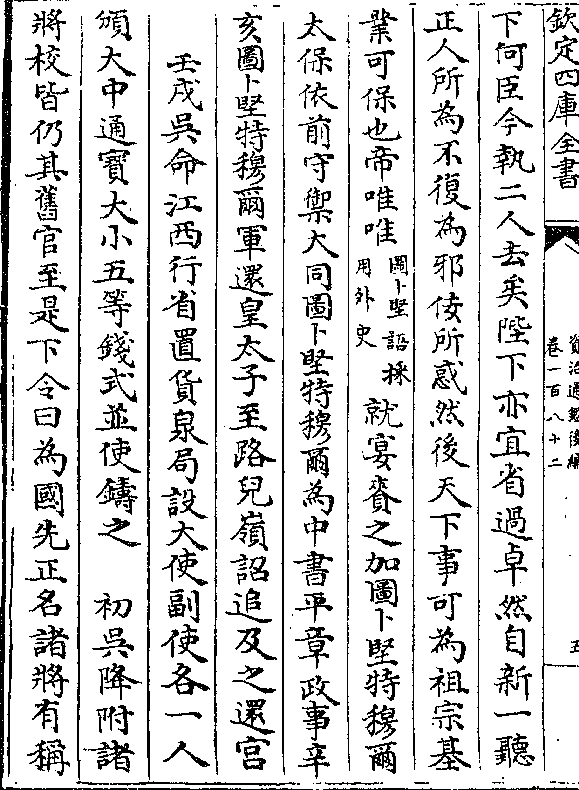 欽定四庫全書
資治通鑑後編
卷一百八十二
五
下何臣今執二人去矣陛下亦宜省過卓然自新一聽
正人所為不復為邪佞所惑然後天下事可為祖宗基
業可保也帝唯唯圖卜堅語採用外史就宴賚之加圖卜堅特穆爾
太保依前守禦大同圖卜堅特穆爾為中書平章政事辛
亥圖卜堅特穆爾軍還皇太子至路兒嶺詔追及之還宮
壬戌吳命江西行省置貨泉局設大使副使各一人
頒大中通寶大小五等錢式並使鑄之 初吳降附諸
將校皆仍其舊官至是下令曰為國先正名諸將有稱